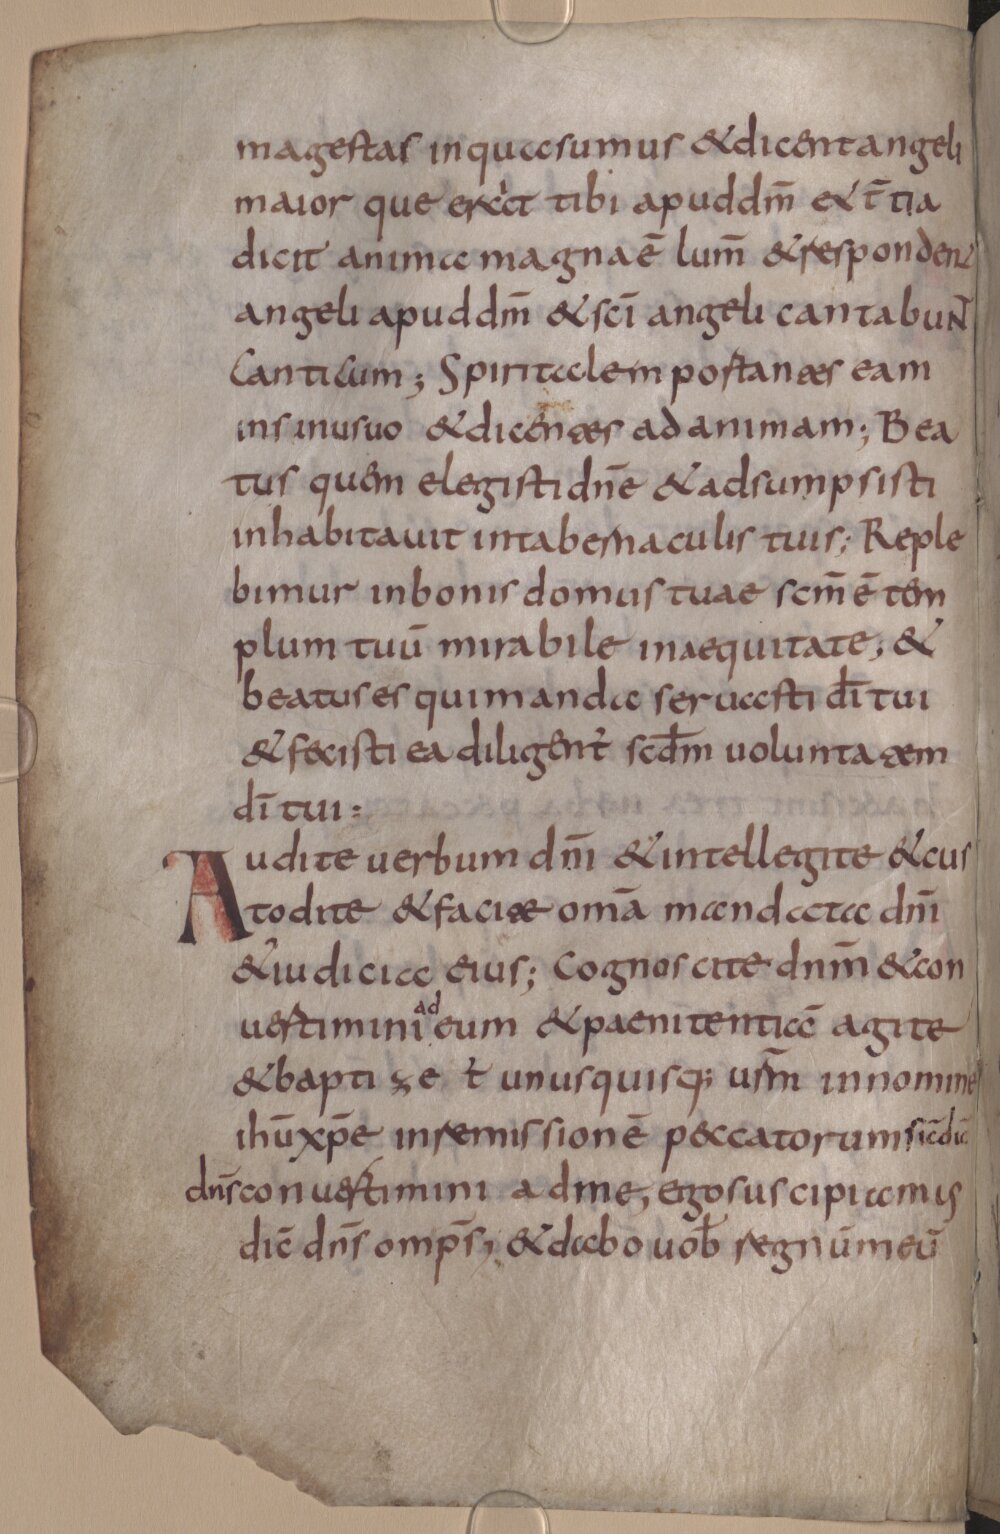 magestas inquasumus & dicent angeli
maior que er&cit tibi apud dm̄ ex t̄ tia
dicit animae magna ē lum̄ & respondent
angeli apud dm̄ & scī angeli cantabunt
Canticum; Spiritalem postantes eam
insinu suo & dicentes ad animam; Bea
tus quem elegisti dnē & adsumpsisti
inhabitauit in tabernaculis tuis; Reple
bimur in bonis domus tuae scm̄ ē tem
plum tuū mirabile in aequitate; &
beatus es qui manda seruasti dī tui
& fecisti ea diligent̉ scdm̄ uoluntatem
dī tui:
Audite uerbum dnī & intellegite & cus
todite & facite omā mandata dnī
& iudicia eius; Cognoscite dnm̄ & con
uertimini ad eum & paenitentiā agite
& baptize t̉ unusquisq; usm̄ in nomine
ihū xpē in remissionē peccatorum sic dic̄
dns̄ conuertimini ad me, ego suscipiam uos
dic̄ dns̄ omps̄; & dabo uob̄ regnū meū